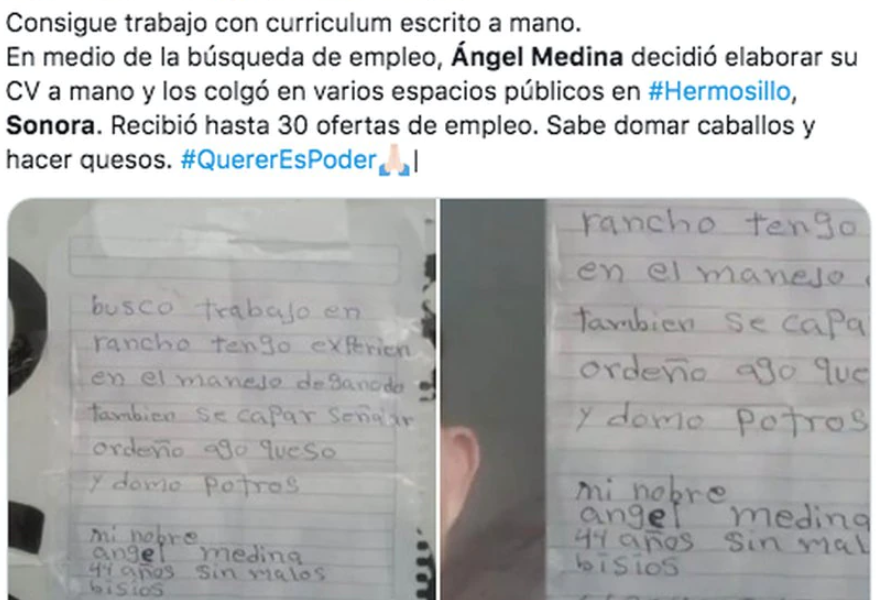 Consigue trabajo con curriculum escrito a mano.
En medio de la búsqueda de empleo, Ángel Medina decidió elaborar su
CV a mano y los colgó en varios espacios públicos en #Hermosillo,
Sonora. Recibió hasta 30 ofertas de empleo. Sabe domar caballos y
hacer quesos. #QuererEsPoder🙏🏻|
busco trabajo en
rancho tengo experien
en el manejo de ganado
tambien se capar señalar
ordeño ago queso
y domo potros
mi nobre
angel medina
44 años sin malos
bisios
rancho tengo
en el manejo
tambien se capa
ordeño ago que
y domo potros
mi nobre
angel medina
44 años sin mal
bisios